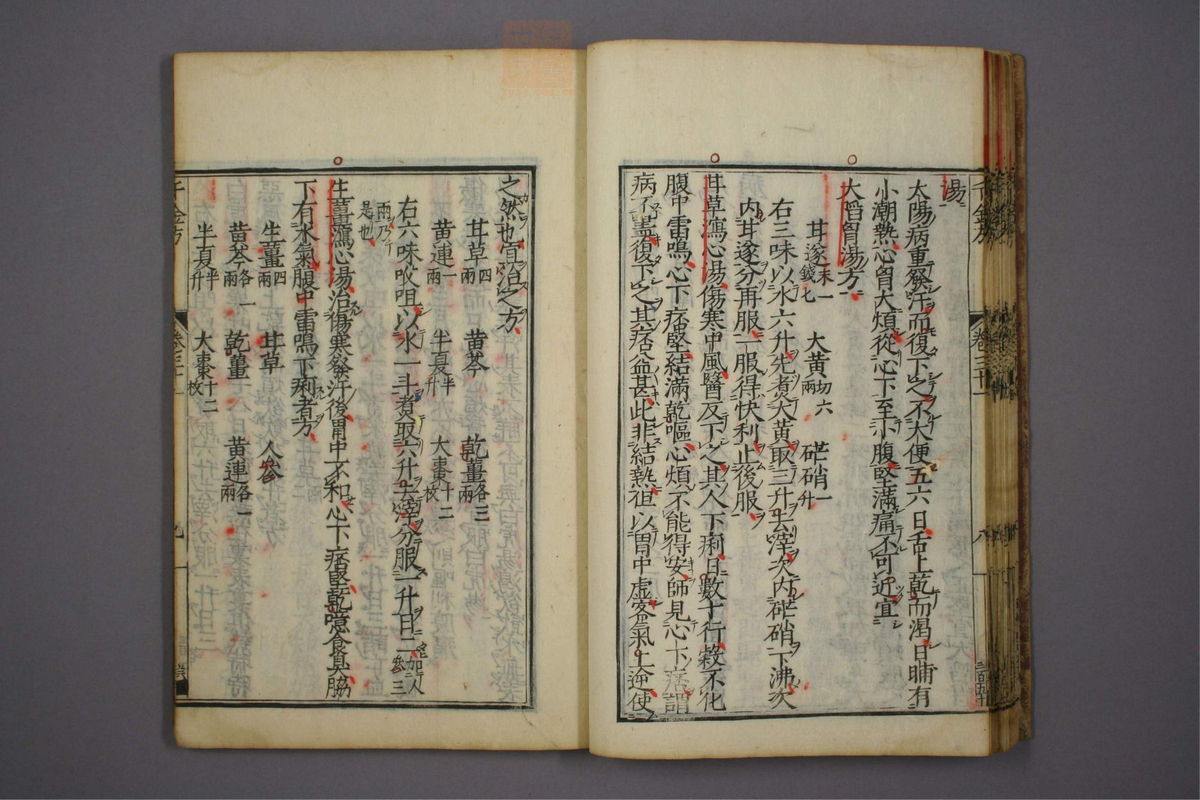 湯
太陽病重發汗而復下之不大便五六日舌上乾而渴日晡有
小潮熱心胷大煩從心下至小腹堅滿痛不可近宜
大陷胷湯方
甘遂末一錢匕 大黃切六兩 芒硝一升
右三味以水六升先煮大黃取三升去滓次內芒硝下沸次
內甘遂分再服一服得快利止後服
甘草瀉心湯傷寒中風醫反下之其人下痢日數十行穀不化
腹中雷鳴心下痞堅結滿乾嘔心煩不能得安師見心下痞謂
病不盡復下之其痞益甚此非結熱但以胃中虛客氣上逆使
之然也宜治之方
甘草四兩 黃芩 乾薑各三兩
黃連一兩 半夏半升 大棗十二枚
右六味㕮咀以水一斗煮取六升去滓分服一升日三加人參三
兩乃
是也
生薑瀉心湯治傷寒發汗後胃中不和心下痞堅乾噫食臭脇
下有水氣腹中雷鳴下痢者方
生薑四兩 甘草 人參
黃芩各一兩 乾薑 黃連各一兩
半夏半升 大棗十二枚
千金方 卷三十一 九